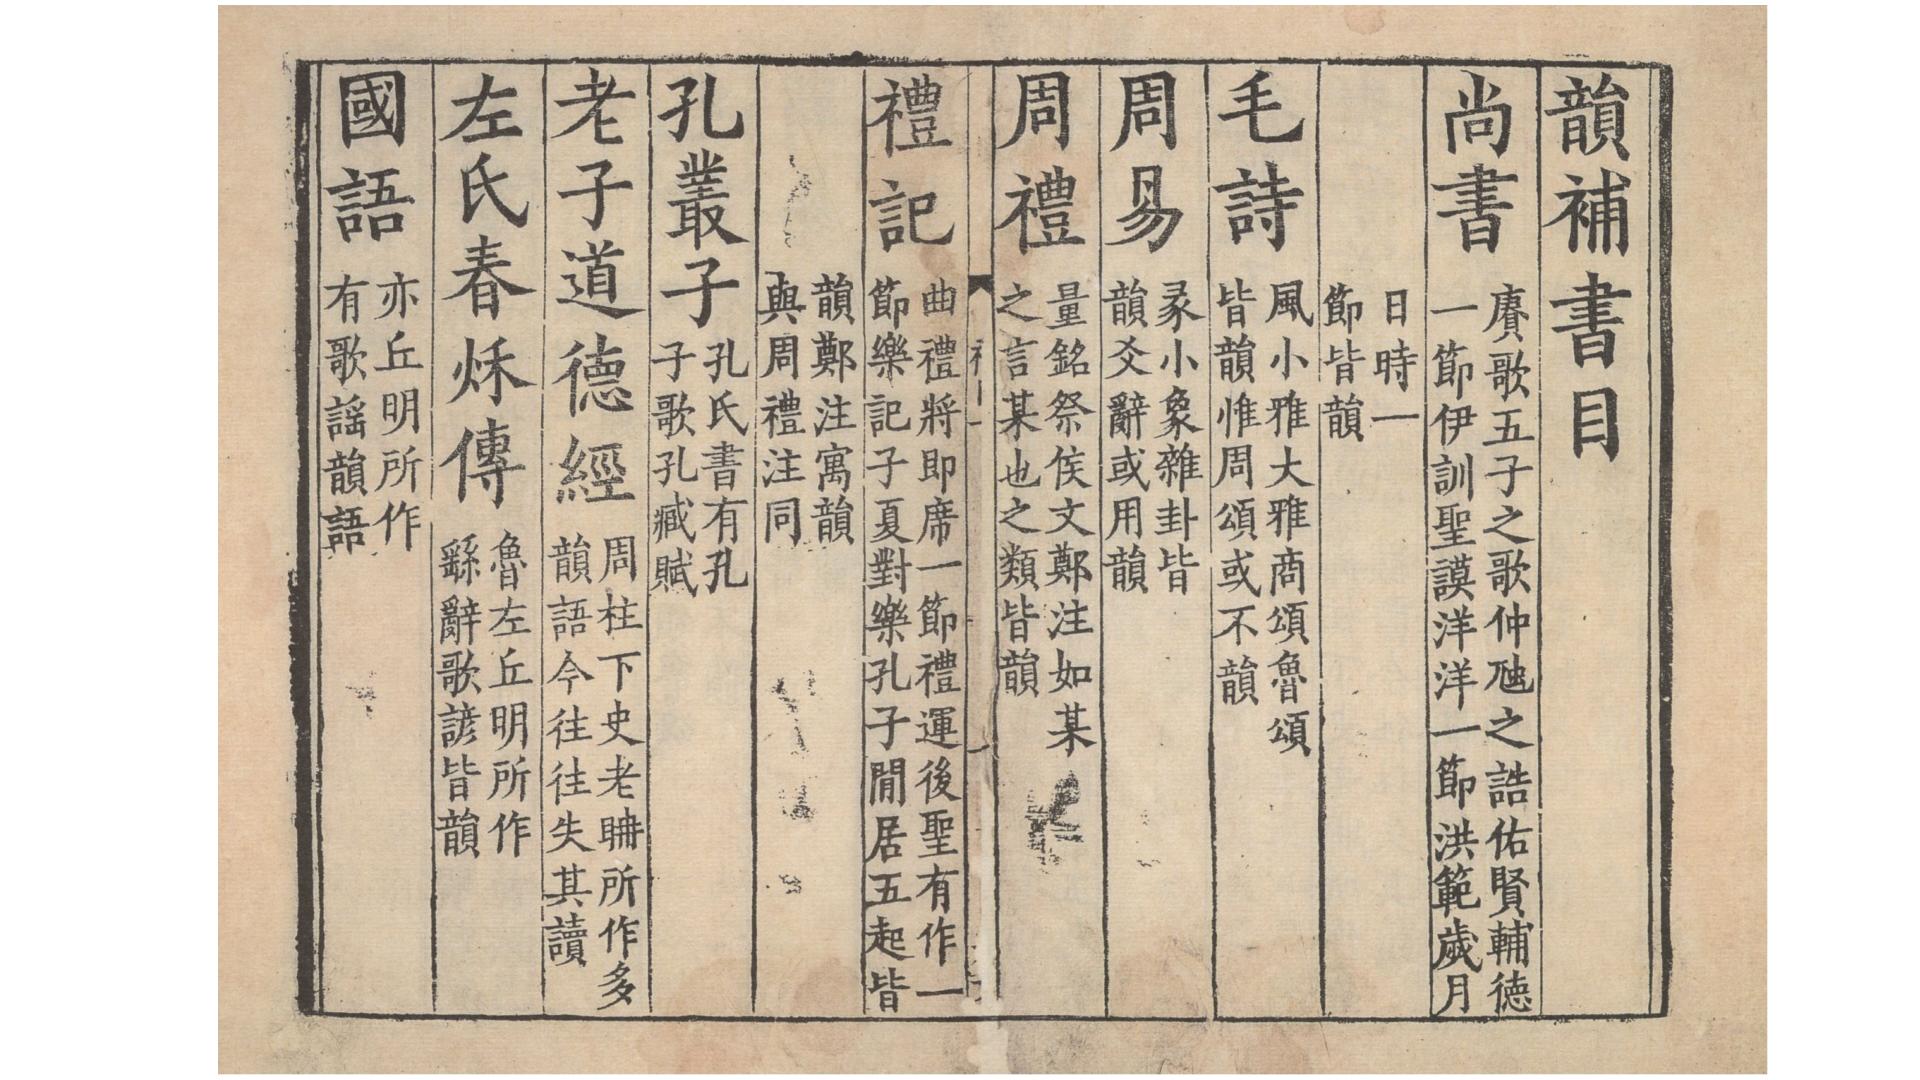 韻補書目
尚書
賡歌五子之歌仲虺之誥佑賢輔德
一節伊訓聖謨洋洋一節洪範歲月
日時一
節皆韻
毛詩
風小雅大雅商頌魯頌
皆韻惟周頌或不韻
周易
彖小象雜卦皆
韻爻辭或用韻
周禮
量銘祭侯文鄭注如某
之言某也之類皆韻
禮記
曲禮將即席一節禮運後聖有作一
節樂記子夏對樂孔子閒居五起皆
韻鄭注寓韻
與周禮注同
孔叢子
孔氏書有孔
子歌孔臧賦
老子道德經
周柱下史老聃所作多
韻語今往往失其讀
左氏春秌傳
魯左丘明所作
繇辭歌諺皆韻
國語
亦丘明所作
有歌謡韻語